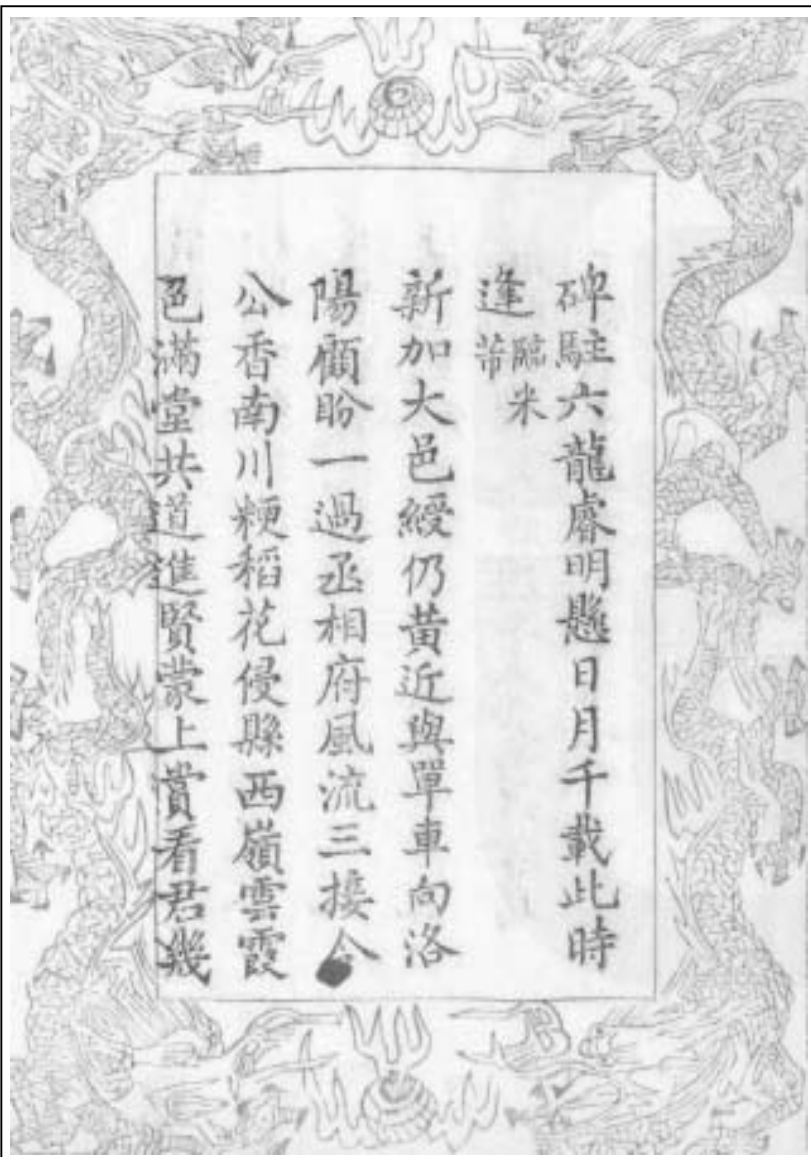 碑駐六龍睿明懸日月千載此時
逢臨米芾
新加大邑綬仍黄近與單車向洛
陽顧盼一過丞相府風流三接令
公香南川粳稻花侵縣西嶺雲霞
色滿堂共道進賢蒙上賞看君幾